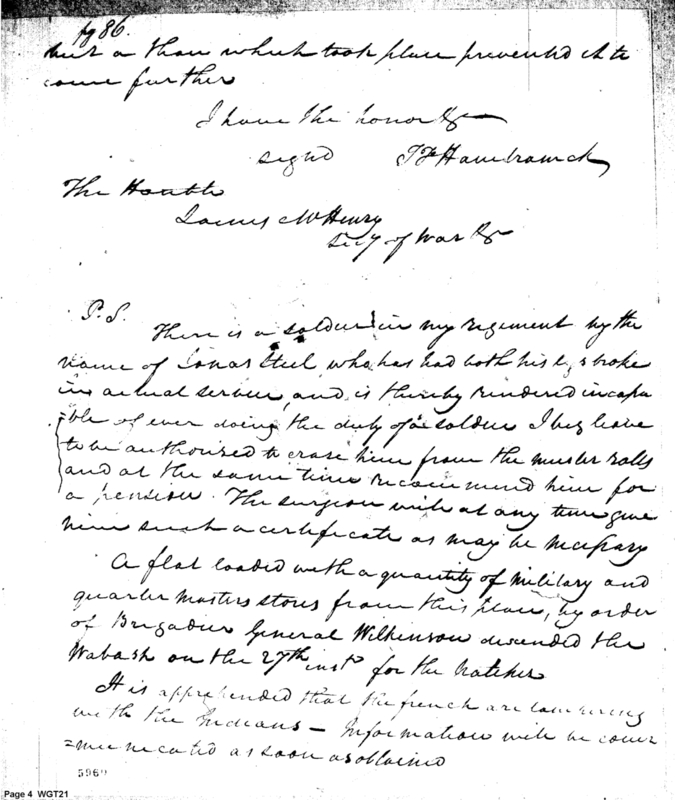 pg 86.
but a thaw which took place prevented it to
come further
I have the honor &c
signd J F Hamtramck
The Honble
James McHenry
Secy of War &c
P.S.
There is a soldier in my regiment by the
name of Jonas Steel who has had both his legs broke
in actual service, and is thereby rendered incapa
=ble of ever doing the duty of a soldier I beg leave
to be authorised to erase him from the muster Rolls
and at the same time recommend him for
a pension. The surgeon will at any time give
him such a certificate as may be necessary
A flat loaded with a quantity of military and
quarter masters stores from this place, by order
of Brigadier General Wilkinson descended the
Wabash on the 27th inst. for the Natchez
It is apprehended that the french are
with the Indians – Information will be com
=municated as soon as obtained
5960
Page 4 WGT21